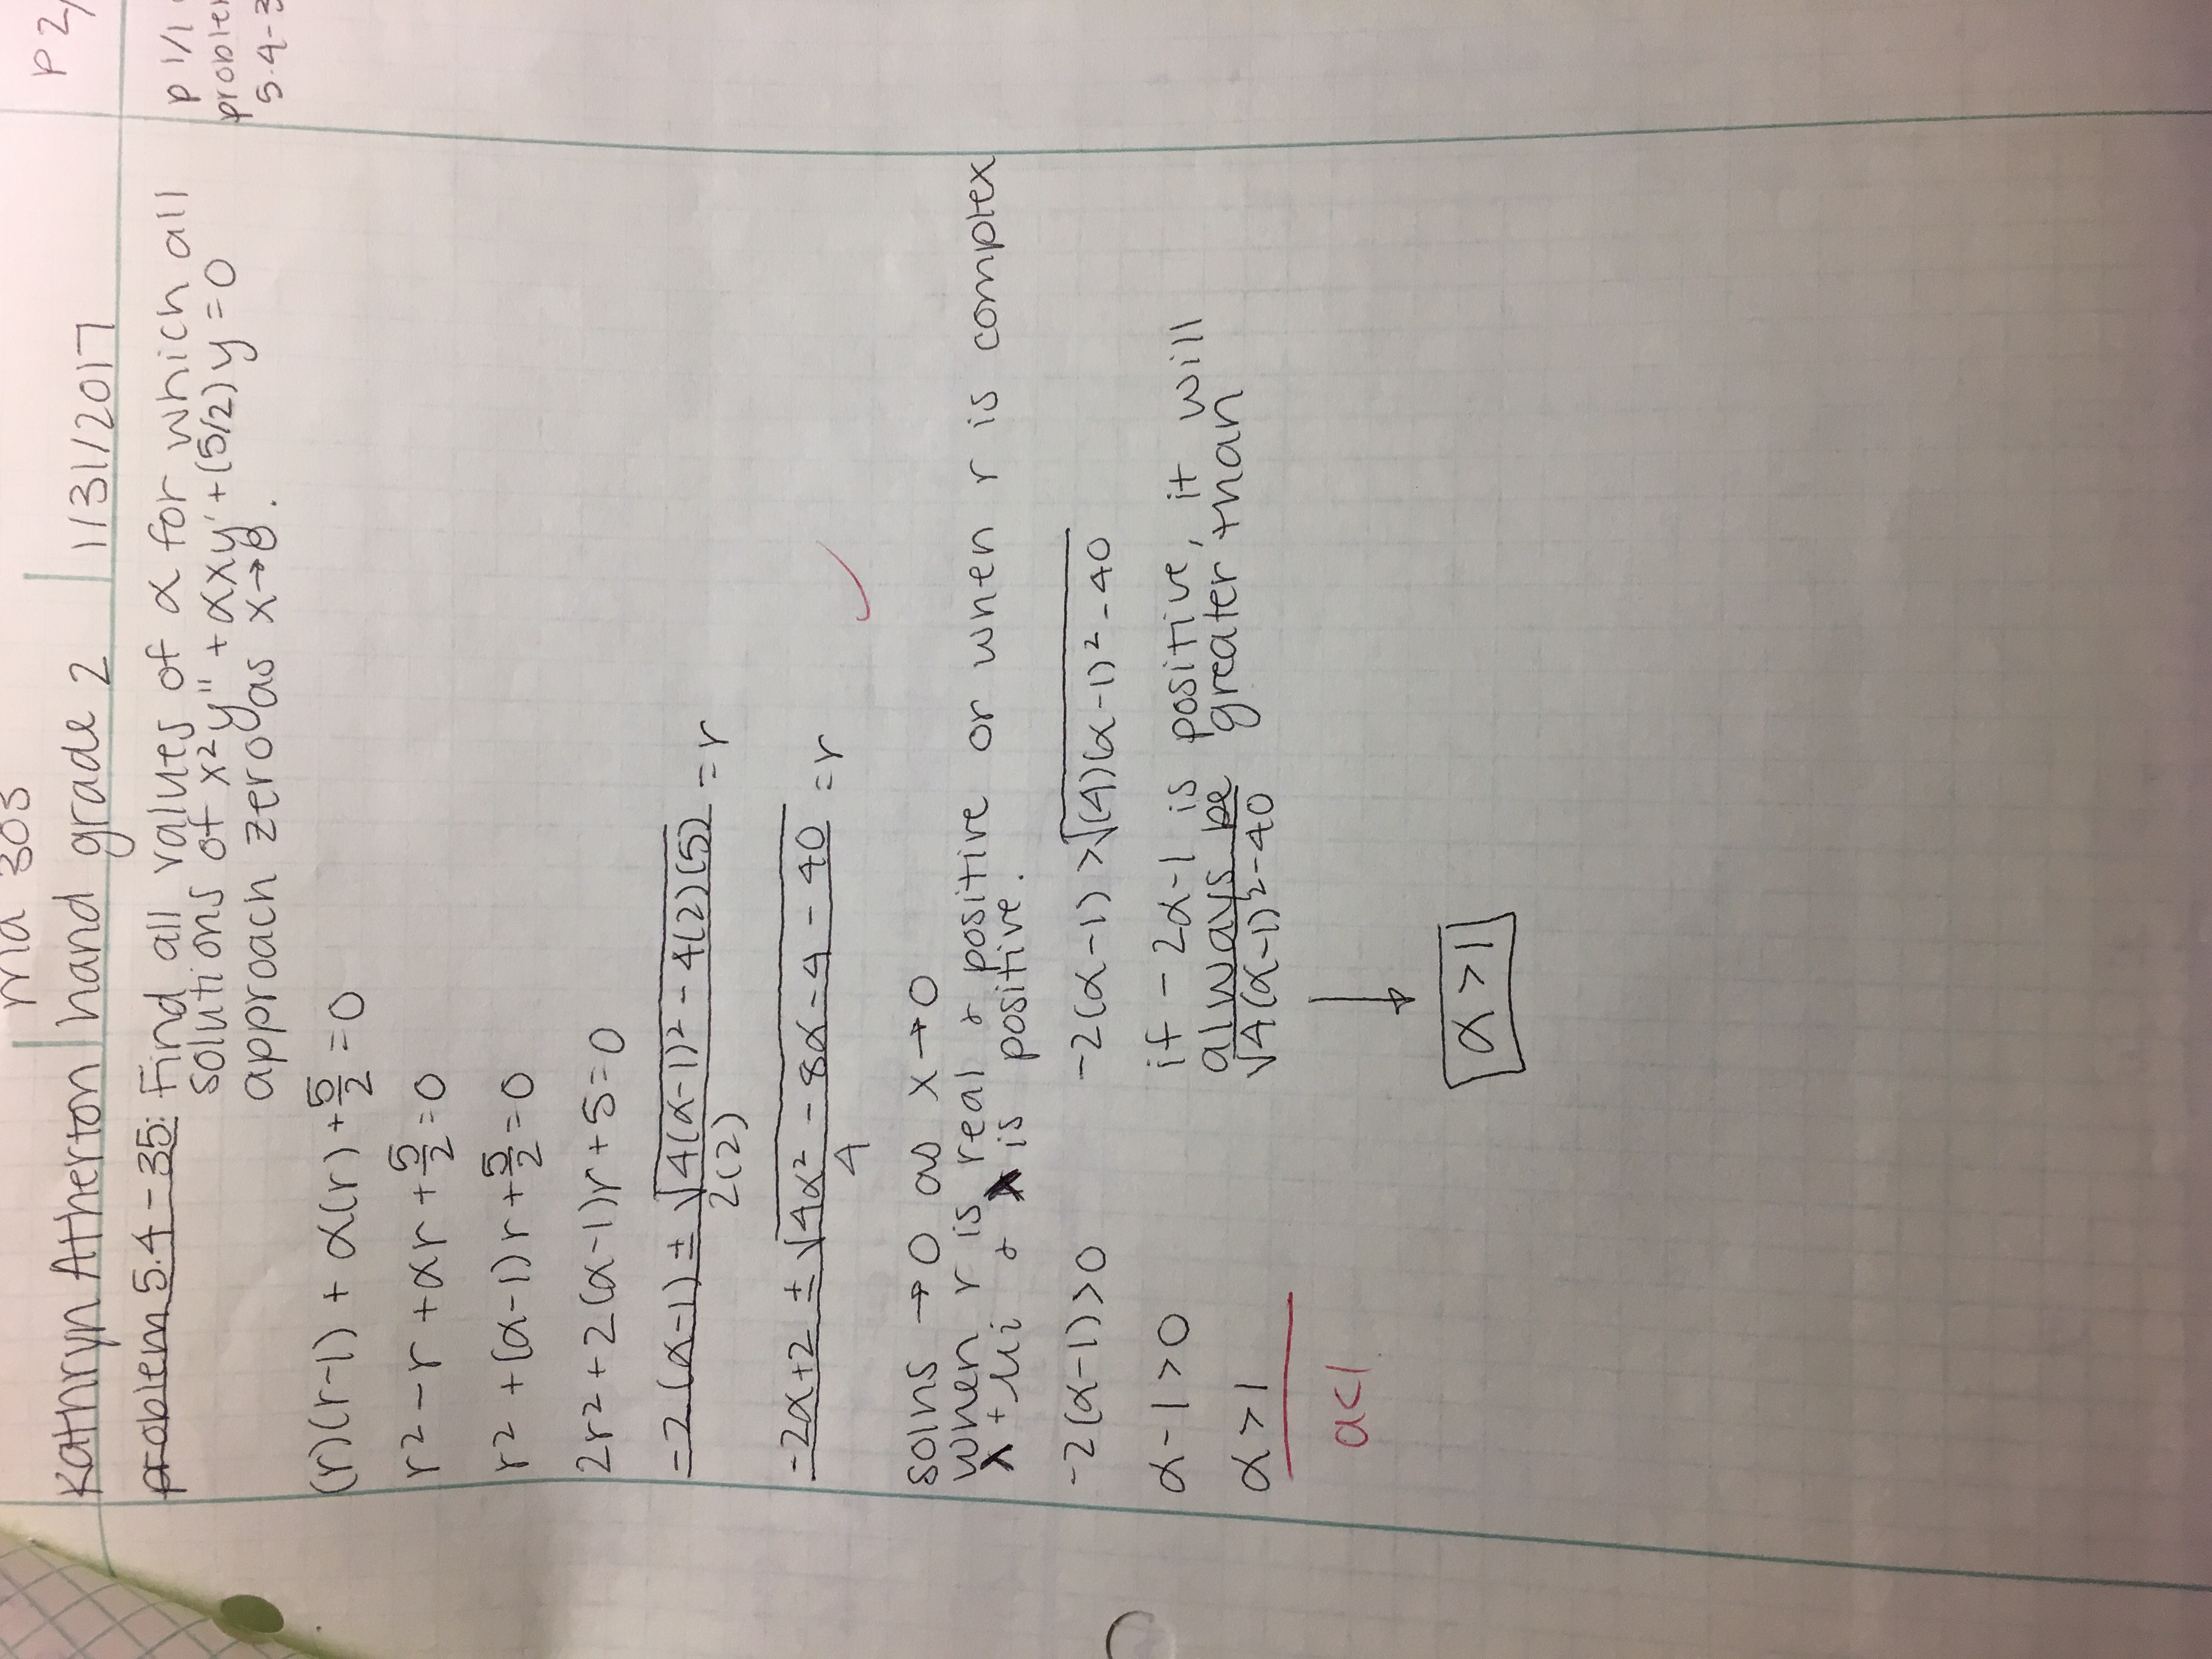 ma 303
Kathryn Atherton | hand grade 2 | 1/31/2017
P 2/
problem 5.4-35: Find all values of α for which all
solutions of x²y'' + αxy' + (5/2)y = 0
approach zero as x→0.
p 1/1
problem
5.4-3
(r)(r-1) + α(r) + 5/2 = 0
r² - r + αr + 5/2 = 0
r² + (α-1)r + 5/2 = 0
2r² + 2(α-1)r + 5 = 0
-2(α-1) ± √4(α-1)² - 4(2)(5) / 2(2) = r
-2α+2 ± √4α² - 8α - 4 - 40 / 4 = r
✓
solns → 0 as x → 0
when r is real & positive or when r is complex
λ + μi & λ is positive.
-2(α-1) > 0
α-1 > 0
α > 1
a<1
-2(α-1) > √(4)(α-1)² - 40
if -2α-1 is positive, it will
always be greater than
√4(α-1)² - 40
↓
α > 1